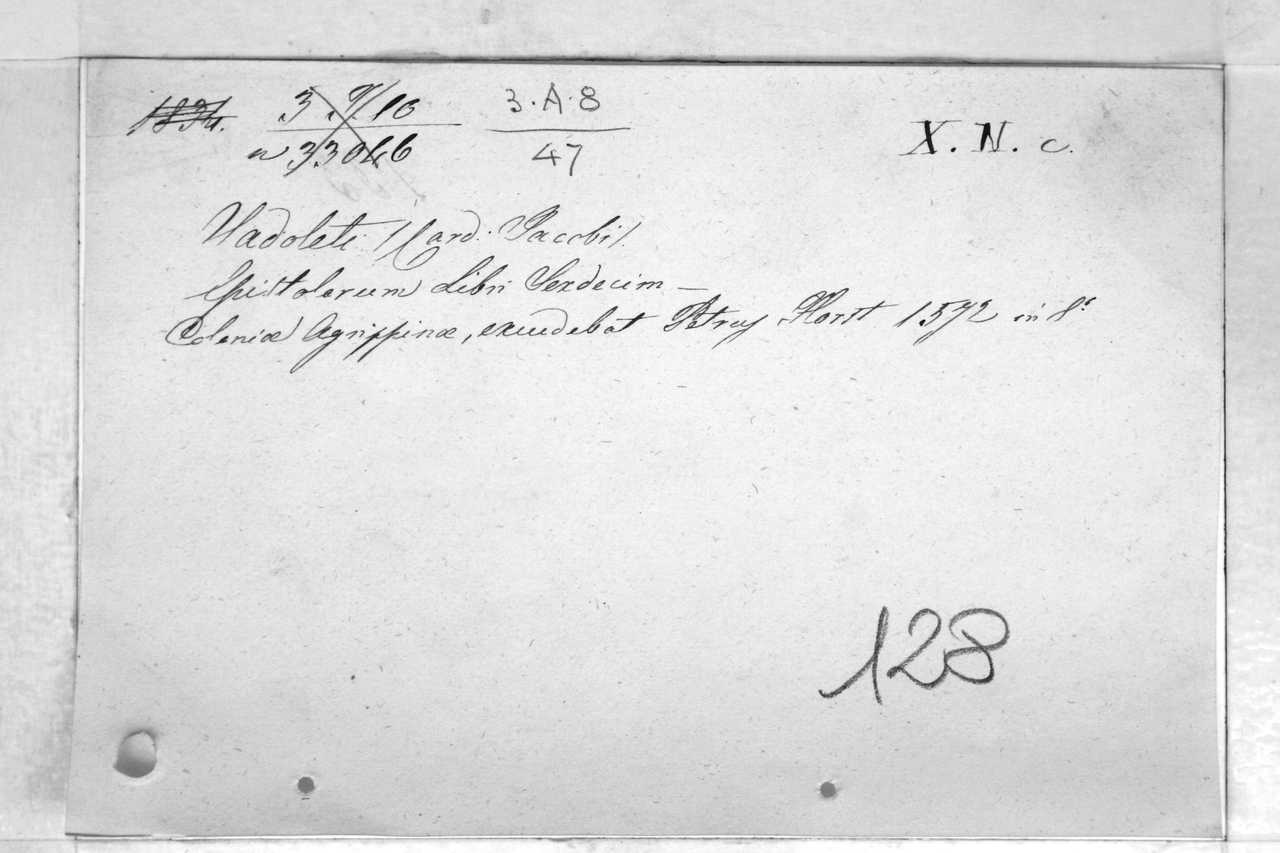 1834. 3.9/10 3.A.8 X.N.c.
n 33046 47
Sadoleti (Card. Jacobi)
Epistolarum Libri Sexdecim —
Coloniæ Agrippinæ, excudebat Petrus Horst 1572 in 8°
128